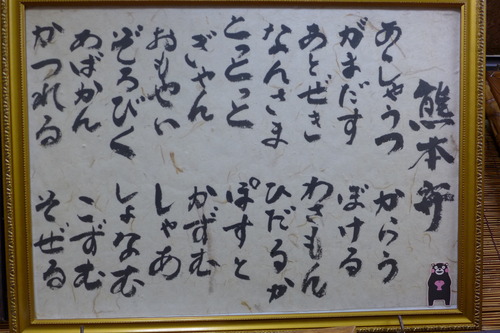 熊本弁
あくしゃうつ からう
がまだす ぼける
あとぜき わさもん
なんさま ひだるか
とっとっと ぽすと
ぎゃん かずむ
おもやい しゃあ
ぞろびく しょなむ
あばかん こずむ
かつれる そぜる